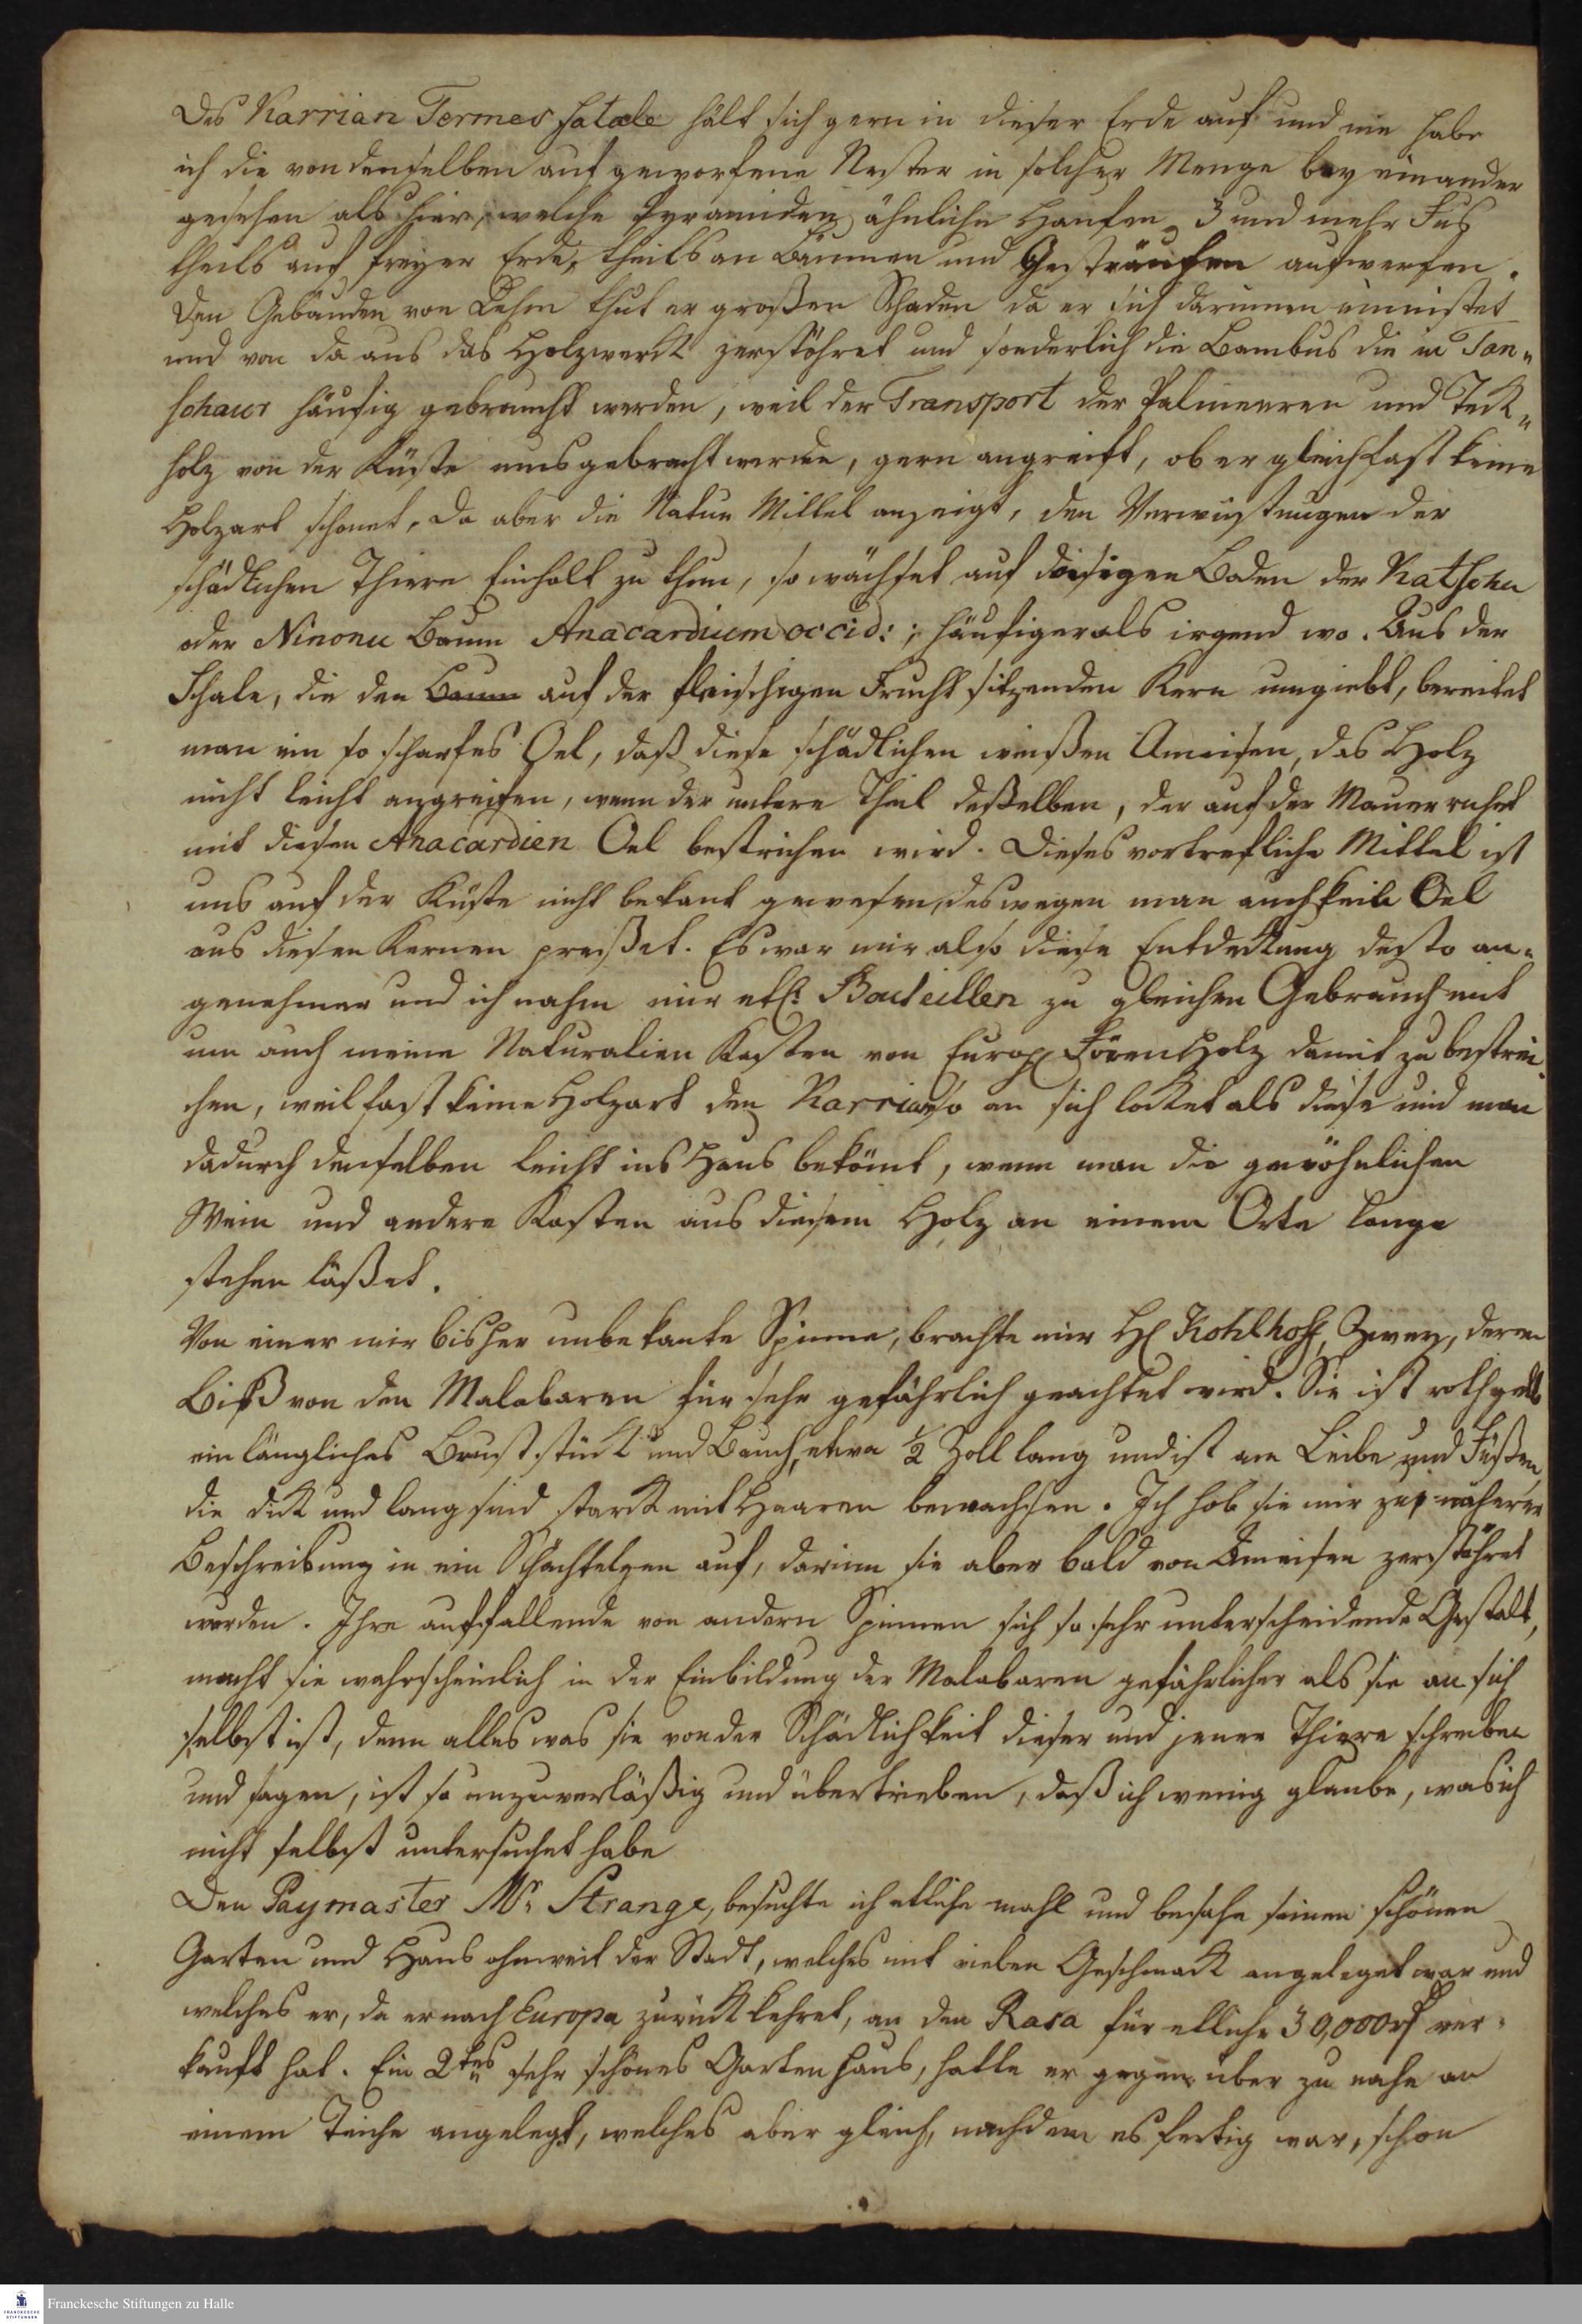 Das Karrian Termes fatale hält sich gern in dieser Erde auf und nie habe
ich die von denselben aufgeworfene Nester in solcher Menge bey einander
gesehen als hier, welche Pyramiden ähnliche Haufen 3 und mehr Fus
theils auf freyer Erde, theils an Bäumen und Gesträuchen aufwerfen.
Den Gebäuden von Lehm thut er großen Schaden da er sich darinnen einnistet
und von da aus das Holzwerck zerstöhret und sonderlich die Bambus die in Tan„
schaur häufig gebraucht werden, weil der Transport der Palmeeren und Teck„
holz von der Küste ausgebracht werden, gern angreift, ob er gleich fast keine
Holzart schonet. Da aber die Natur Mittel anzeigt, den Verwüstungen der
schädlichen Thiere Einhalt zu thun, so wächset auf diesigen Boden der Katschu
oder Ninonu Baum Anacardium occid: ; häufiger als irgend wo. Aus der
Schale, die den Baum auf der fleischigen Frucht sitzenden Kern umgiebt, bereitet
man ein so scharfes Oel, daß diese schädlichen weißen Ameisen, das Holz
nicht leicht angreifen, wenn der untere Theil deßelben, der auf der Mauer ruhet
mit diesen Anacardien Oel bestrichen wird. Dieses vortrefliche Mittel ist
uns auf der Küste nicht bekant gewesen, deswegen man auch kein Oel
aus diesen Kernen preßet. Es war mir also diese Entdeckung desto an„
genehmer und ich nahm mir etl: Bouteillen zu gleichen Gebrauch mit
um auch meine Naturalien Kasten von Europ Förenholz damit zu bestrei„
chen, weil fast keine Holzart den Karrian so an sich locket als diese und man
dadurch denselben leicht ins Haus bekömt, wenn man die gewöhnlichen
Wein und andere Kasten aus diesem Holz an einem Orte lange
stehen läßet.
Von einer mir bisher unbekante Spinne, brachte mir H Kohlhoff, Zwey, deren
Biß von den Malabaren für sehr gefährlich geachtet wird. Sie ist rothgelb
ein längliches Bruststück und Bauch, etwa ½ Zoll lang und ist am Leibe und Füßen,
die dick und lang sind starck mit Haaren bewachsen. Ich hob sie mir zur näherer
Beschreibung in ein Schächtelgen auf, darinn sie aber bald von Ameisen zerstöhret
wurden. Ihre auffallende von andern Spinnen sich so sehr unterscheidende Gestalt,
macht sie wahrscheinlich in der Einbildung der Malabaren gefährlicher als sie an sich
selbst ist, denn alles was sie von der Schädlichkeit dieser und jener Thiere schreiben
und sagen, ist so unzuverläßig und übertrieben, daß ich wenig glaube, was ich
nicht selbst untersuchet habe
Den Paymaster Mr Strange, besuchte ich etliche mahl und besahe seinen schönen
Garten und Haus ohnweit der Stadt, welches mit vielen Geschmack angeleget war und
welches er, da er nach Europa zurückkehret, an den Rasa für etliche 30,000 rf ver„
kauft hat. Ein 2tes sehr schönes Gartenhaus, hatte er gegen über zu nahe an
einem Teiche angelegt, welches aber gleich, nachdem es fertig war, schon
Franckesche Stiftungen zu Halle